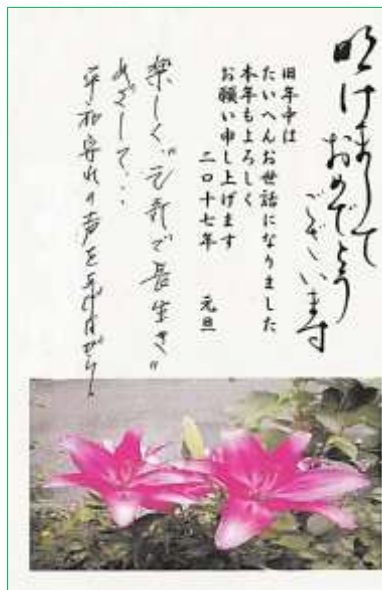 明けまして
おめでとう
ございます
旧年中は
たいへんお世話になりました
本年もよろしく
お願い申し上げます
二〇十七年 元旦
楽しく、"元気で長生き"
めざして・・・
平和守れの声を